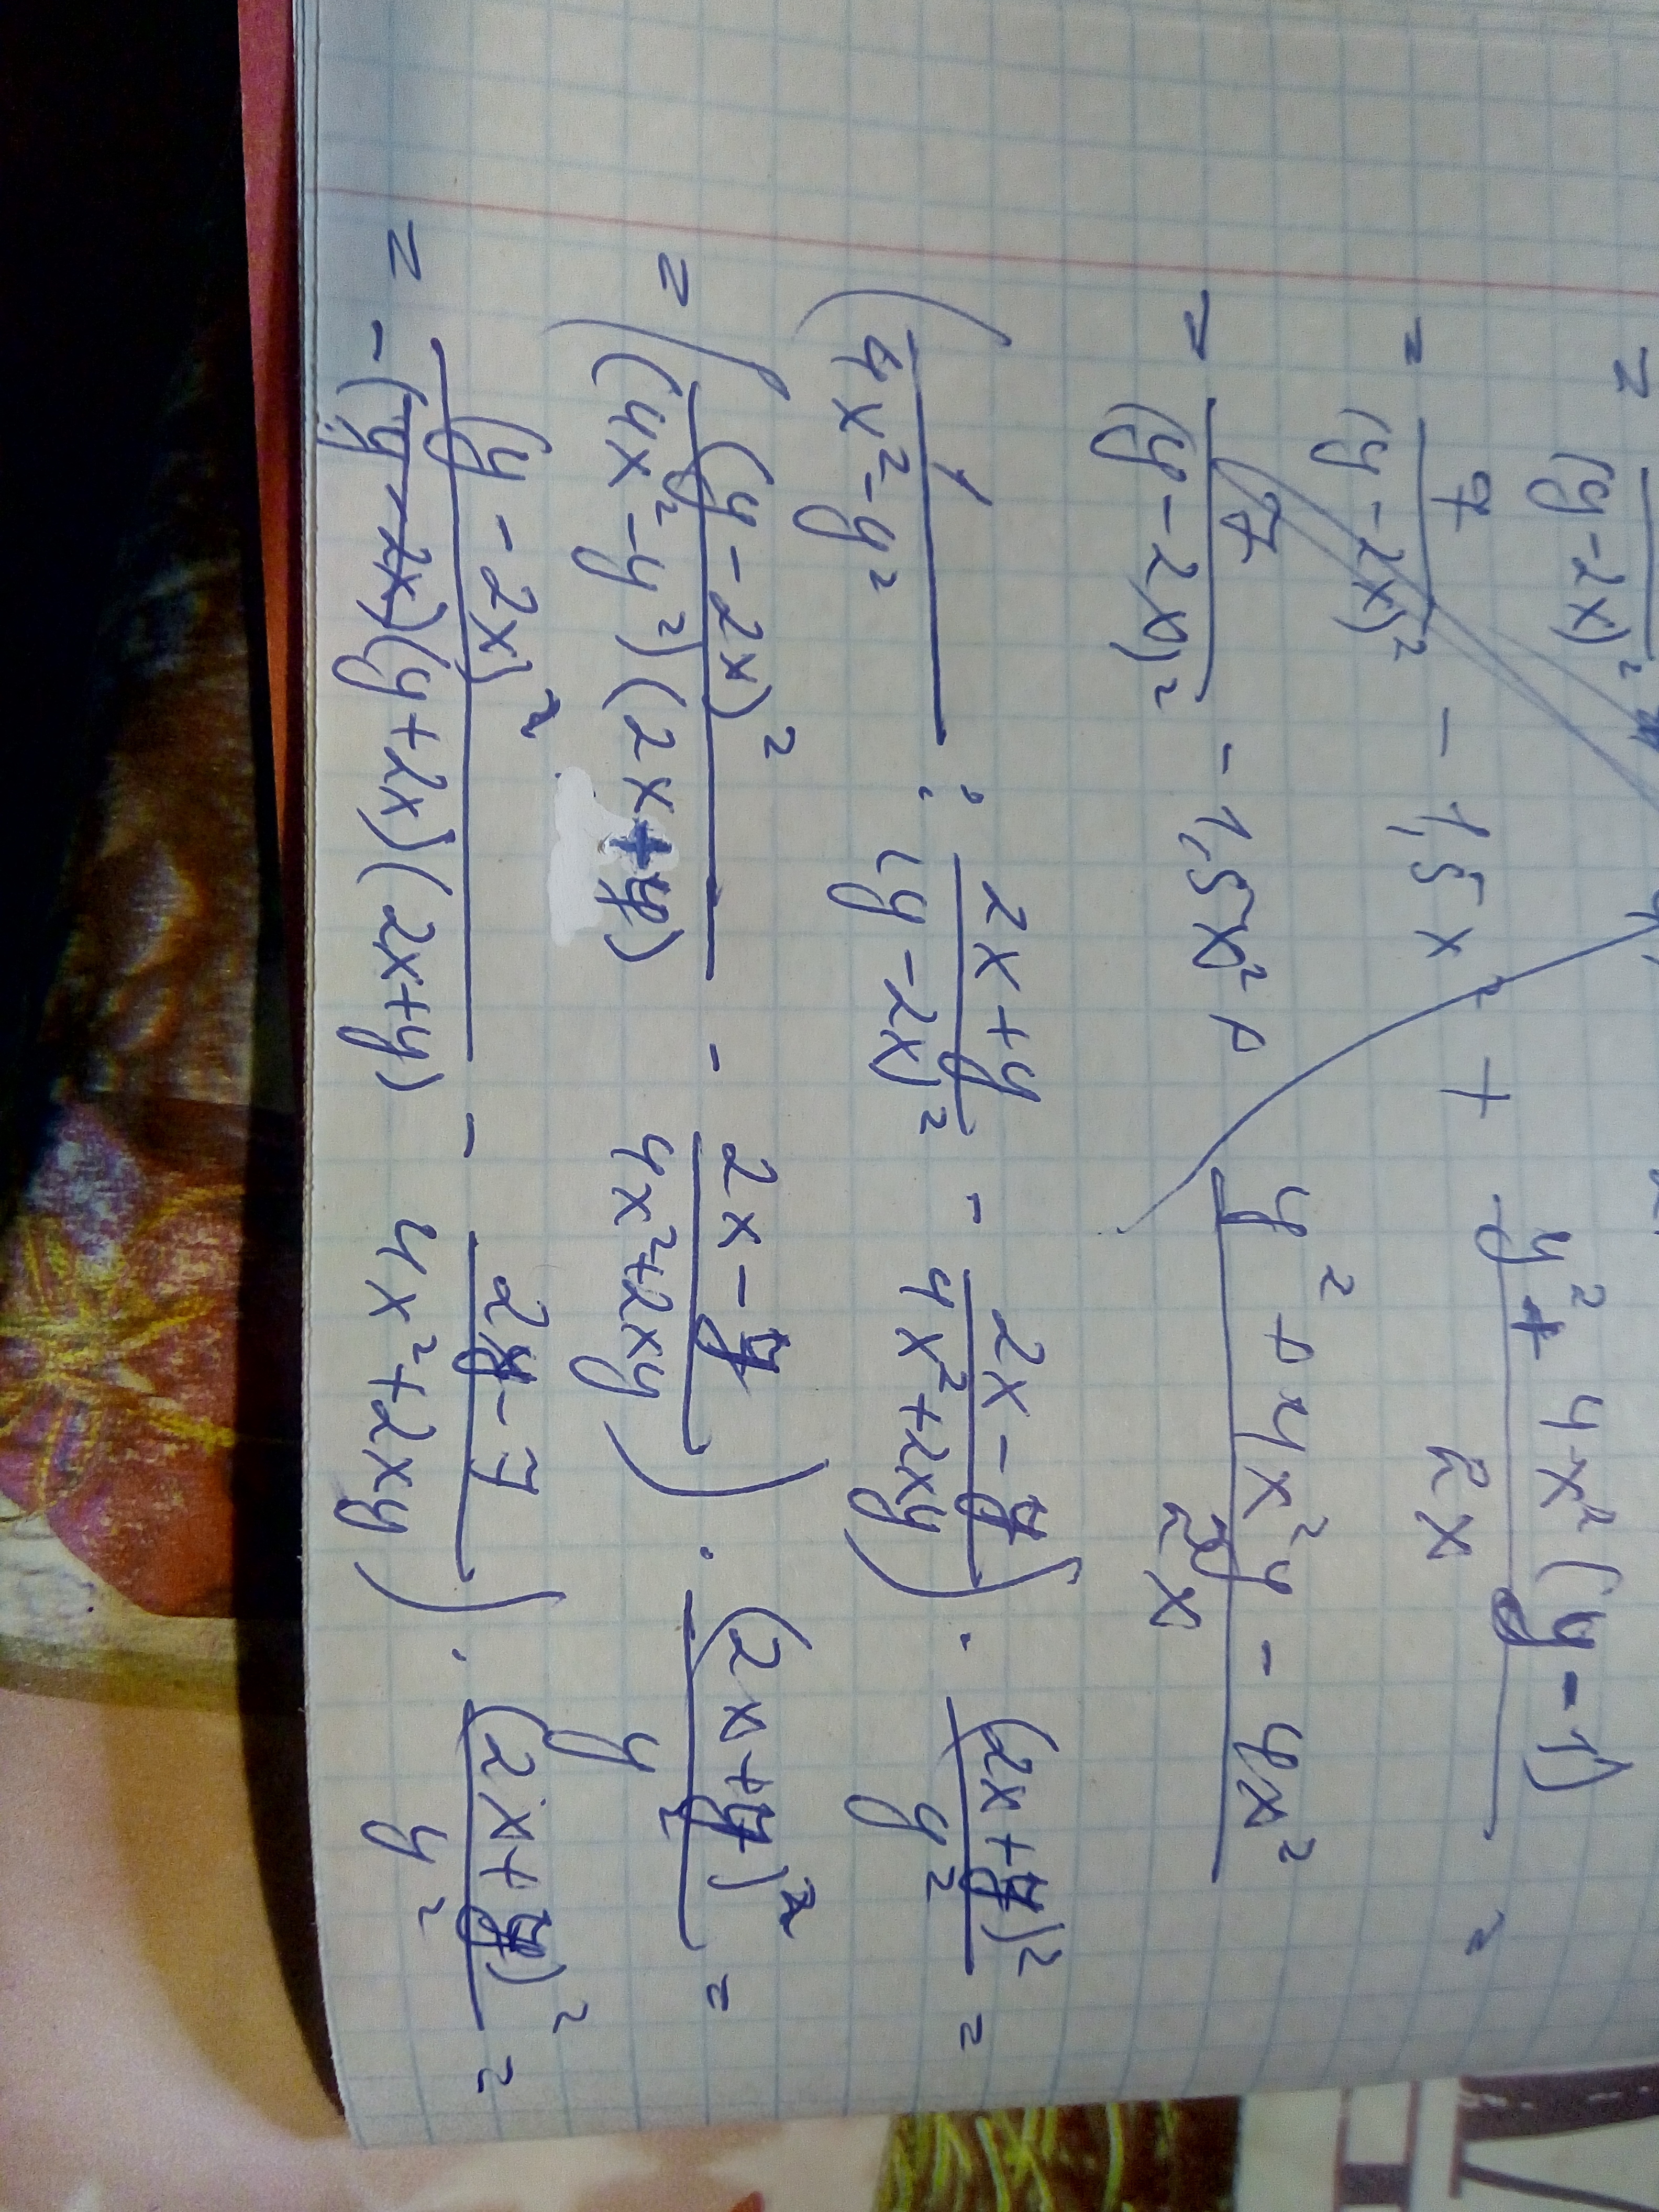 = (y-2x)²
= 7/(y-2x)² - 1,5x² + (y² + 4x²(y-1))/2x =
= 7/(y-2x)² - 1,5x² + (y² + 4x²y - 4x²)/2x
(1/(4x²-y²) : (2x+y)/(y-2x)² - (2x-y)/(4x²+2xy)) · (2x+y)²/y² =
= ((y-2x)²/((4x²-y²)(2x+y)) - (2x-y)/(4x²+2xy)) · (2x+y)²/y² =
= -(y-2x)²/((y-2x)(y+2x)(2x+y)) - (2x-y)/(4x²+2xy)) · (2x+y)²/y² =